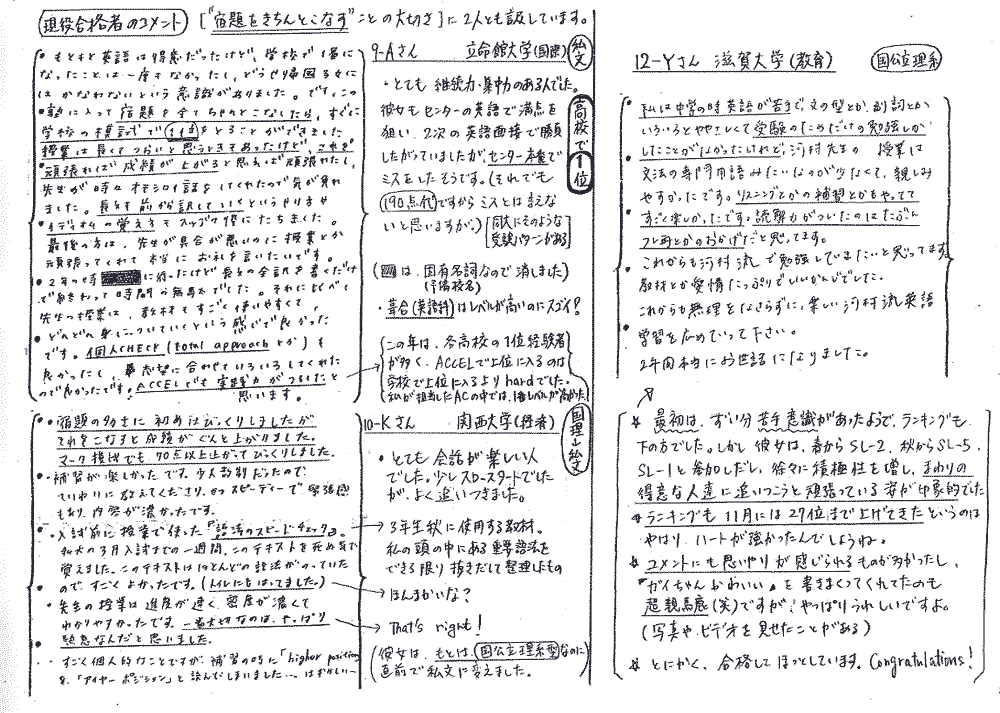 現役合格者のコメント 〔"宿題をきちんとこなす"ことの大切さ〕に2人とも話しています。
・もともと英語は得意だったけど、学校で1番に
なったことは一度もなかったし、どうせ帰国子女に
はかなわないという意識がありました。ですが
・塾に入って宿題を全てちゃんとこなしたら、すぐに
学校の模試で1位をとることができました
授業は長くてつらいと思うときもあったけど、これを
・頑張れば成績が上がると思えば頑張れたし、
先生が時々オモシロイ話をしてくれたので気が紛れ
ました。長文を前から訳していくというやり方や
・イディオムの覚え方もスッゴク役にたちました。
最後の方は、先生が具合が悪いのに授業とか
頑張ってくれて本当にお礼を言いたいです。
・2年の時 に行ったけど長文の全訳を書くだけ
で終わって時間の無駄でした。それに比べて
先生の授業は、教材もすごく使いやすくて、
・どんどん身についていくという感じで良かった
です。個人CHECK (total approachとか)も
良かったし、志望に合わせていろいろしてくれた
ので良かったです!ACCELでも実践力がつきましたと
思います。
9-Aさん 立命館大学(国際) 私文
高校で1位
・とても継続力・集中力のある人でした。
彼女もセンターの英語で満点を
狙い、2次の英語面接で勝負
したがっていましたが、センター本番で
ミスをしたそうです。(それでも
190点代ですからミスとは言えな
いと思いますが。)
同大にそのような
受験パターンがある
( は、固有名詞なので消しました)
(予備校名)
・葺合(英語科)はレベルが高いのにスゴイ!
この年は、各高校の1位経験者
が多く、ACCELで上位に入るのは
学校で上位に入るよりhardでした。
私が担当したACの中では、1番レベルが高かった。
・宿題の多さに初めはびっくりしましたが
それをこなすと成績がぐんと上がりました。
マーク模試でも、90点以上上がってびっくりしました。
・補習が楽しかったです。少人数制だったので、
ていねいに教えてくださり、かつスピーディーで緊張感
もあり、内容が濃かったです。
・入試前に授業で使った『語法のスピードチェック』。
私大の3月入試までの一週間、このテキストを死ぬ気で
覚えました。このテキストはほとんどの語法がのっていた
ので、すごくよかったです。(トイレにもはってました。)
・先生の授業は進度が速く、密度が濃くて
わかりやすかったです。一番大切なのは、やっぱり
熱意なんだと思いました。
・すごく個人的なことですが、補習の時に「higher position」
を、「アイヤーポジション」と読んでしまいました… はずかしい〜
10-Kさん 関西大学(経済) 国理→私文
・とても会話が楽しい人
でした。少しスロースタートでした
が、よく追いつきました。
→3年生秋に使用する教材。
私の頭の中にある重要語法を
できる限り抜きだして整理したもの
→ほんまかいな?
→That's right!
(彼女は、もとは、国公立理系型なのに
直前で私文に変えました。)
12-Yさん 滋賀大学(教育) 国公立理系
・私は中学の時英語が苦手で、文の型とか、副詞とか
いろいろとややこしくて受験のためだけの勉強しか
したことがなかったけれど、河村先生の 授業は
文法の専門用語みたいなのが少なくて、親しみ
やすかったです。リスニングとかの補習とかもやってて
すごく楽しかったです。読解力がついたのはたぶん
フレ再とかのおかげだと思ってます。
これからも河村流で勉強していきたいと思ってます
教材とか愛情たっぷりでいいかんじでした。
これからも無理をなさらずに、楽しい河村流英語
学習を広めていって下さい。
2年間本当にお世話になりました。
☆最初は、ずい分苦手意識があったようで、ランキングも
下の方でした。しかし彼女は、春からSL-2、秋からSL-5、
SL-1と参加しだし、徐々に積極性を増し、まわりの
得意な人達に追いつこうと頑張っている姿が印象的でした
☆ランキングも11月には27位まで上げてきたというのは
やはり、ハートが強かったんでしょうね。
☆コメントにも思いやりが感じられるものが多かったし、
『ガイちゃんかわいい』を書きまくってくれてたのも
超親馬鹿(笑)ですが、やっぱりうれしいですよ。
(写真や、ビデオを見せたことがある)
☆とにかく、合格してほっとしています。Congratulations!